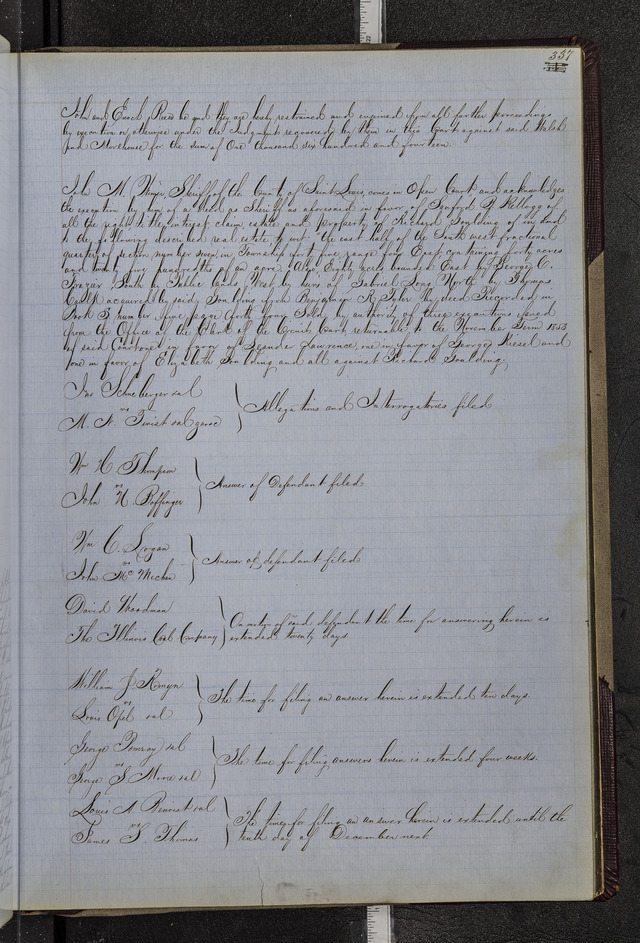 337
John and Enoch Reese be and they are hereby restrained and enjoined from all further proceedings
by execution or otherwise under the Judgment recovered by them in this Court against said Walsh
and Morehouse for the sum of One thousand six hundred and fourteen
John M. Wimer, Sheriff of the County of Saint Louis, comes in Open Court and acknowledges
the execution by him of a Deed as Sheriff as aforesaid in favor of Sanford Kellogg of
all the right, title, interest, claim, estate and property of Richard Soulding of in and
to the following described real estate to wit: the east half of the South west fractional
quarter of section number seven, in Township forty five range four East, containing forty acres
and twenty five hundredths of an acre. Also, Eighty acres bounded East by George C.
South by Public lands, West by heirs of Gabriel Long North by Thomas
acquired by said Soulding from Benjamin R. by deed Recorded in
Book S number nine page forty four Sold by authority of three executions issued
from the Office of the Clerk of the Circuit Court returnable to the November Term 1853
of said Court one in favor of Leander Lawrence, one in favor of George and
one in favor of Elizabeth Soulding and all against Richard Soulding
Jno Schneeberger et al
vs
M. A. et al garne
Allegations and Interrogatories filed
Wm H. Thompson
vs
John N. Poffinger
Answer of Defendant filed
Wm C. Logan
vs
John Mc Mechan
Answer of defendant filed
David Woodman
The Illinois Coal Company
On motion of said defendant the time for answering herein is
extended twenty days
William J. Romyn
vs
Louis Opel et al
The time for filing an answer herein is extended ten days.
George Pomroy et al
vs
George S. Moore et al
The time for filing answers herein is extended four weeks.
Louis A Benoist et al
vs
James S. Thomas
The time for filing an answer herein is extended until the
tenth day of December next.